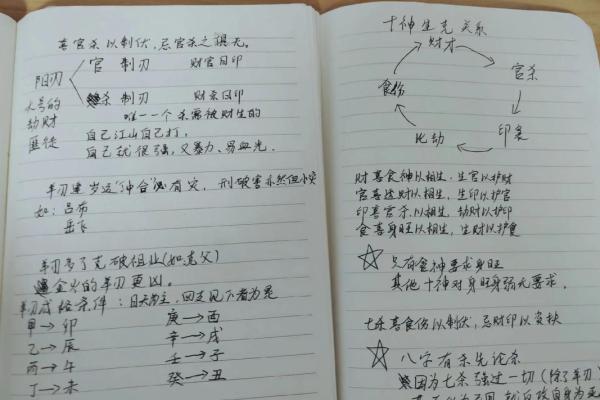 喜官杀以制伏，忌官杀之俱无。
阳刃
官 制刃 财官日印
杀 制刃 财杀日印
大号的
劫财
匪徒
唯一一个杀需被财生的
自己江山自己打，
自己就很强，又暴力、易血光。
羊刃逢岁运"冲合"必有灾，刑破害亦然但小灾
如：吕布
岳飞
羊刃多了克破祖业(如克父)
金火的羊刃更凶。
羊刃成格条件：日天为主，回走见下者为是
甲→卯
乙→辰
丙→午
丁→未
庚→酉
辛→戌
壬→子
癸→丑
十神生克关系
财才
官杀
印枭
比劫
食伤
财喜食神以相生，生官以护财
官喜透财以相生，生印以护官
印喜官杀以相生，劫财以护印
食喜身旺以相生，生财以护食
☆ 只有食神要求身旺
其他十神对身旺身弱无要求。
七杀喜食伤以制伏，忌财印以资扶
☆ 八字有杀先论杀
因为七杀强过一切(除了羊刃